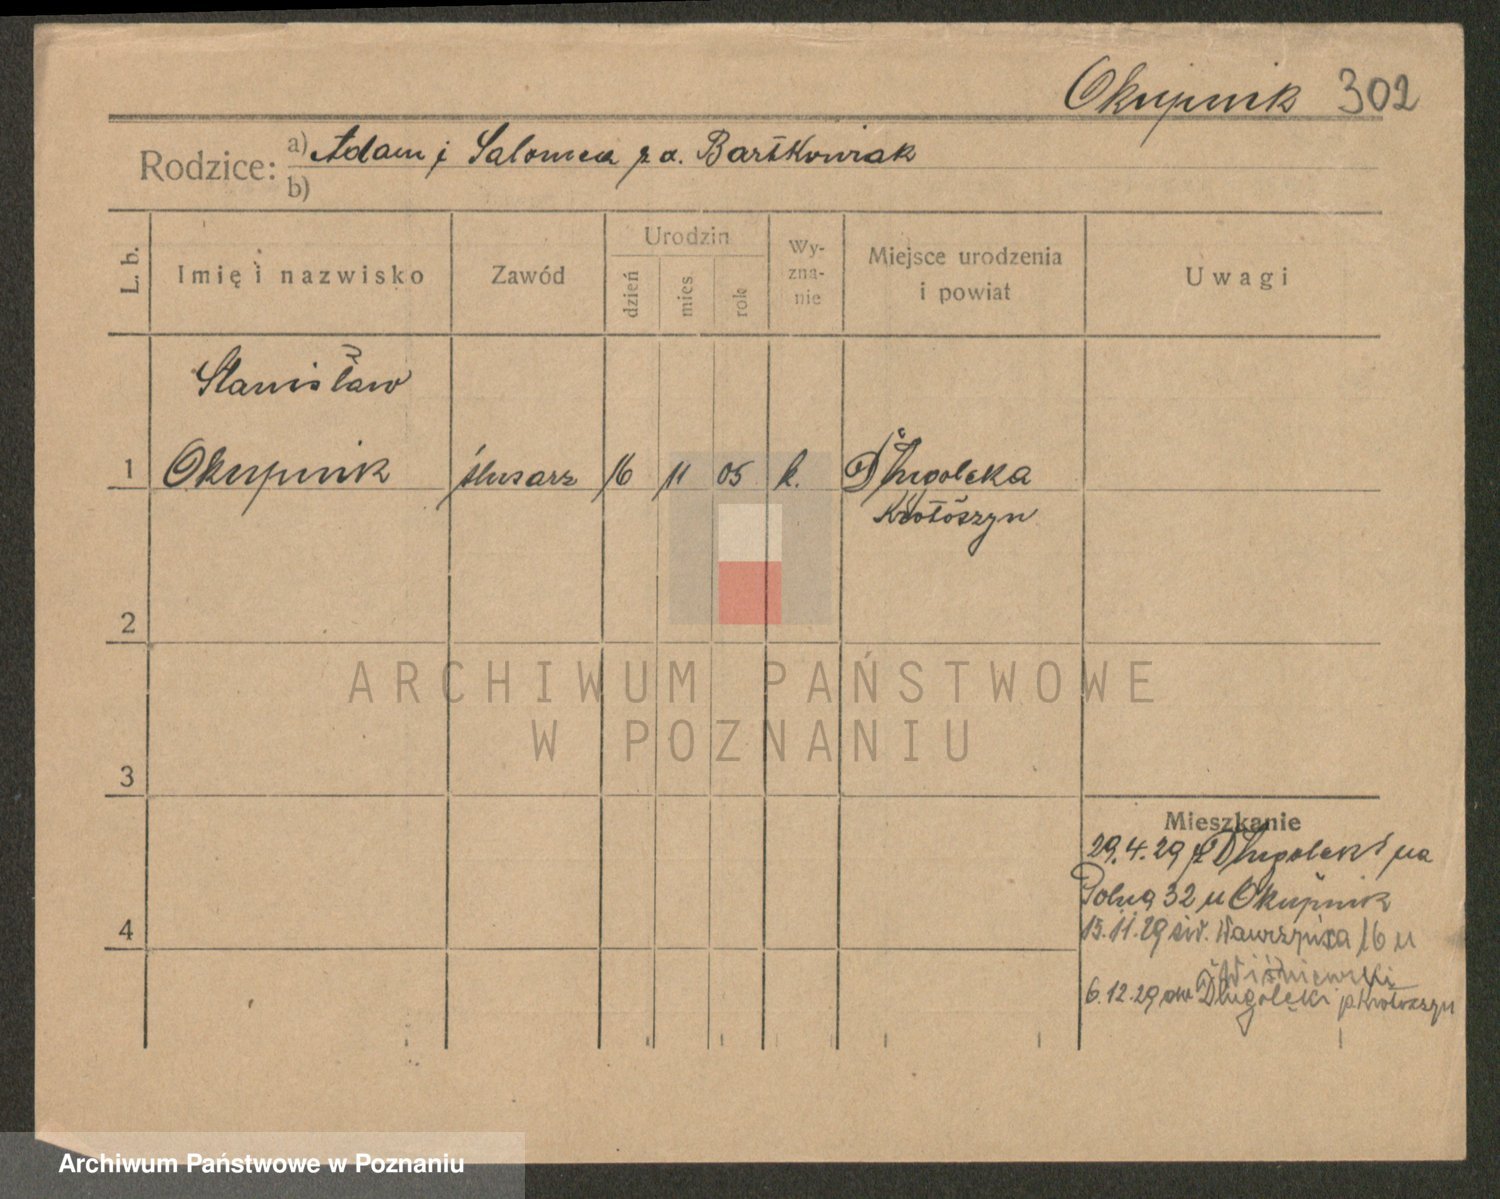 Okupnik 302
Rodzice: a) Adam i Salomea z d. Bartkowiak
b)
L. b. Imię i nazwisko Zawód Urodzin dzień mies rok Wy-zna-nie Miejsce urodzenia i powiat Uwagi
Stanisław
1 Okupnik ślusarz 16 11 05 k. Długolęka
Krotoszyn
2
ARCHIWUM PAŃSTWOWE
W POZNANIU
3
Mieszkanie
29.4.29 z Długoleki na
Polną 32 u Okupnik
4 15.11.29 św. Wawrzyńca 16 u
Wiśniewski
6.12.29 do Długolęki p Krotoszyn
Archiwum Państwowe w Poznaniu